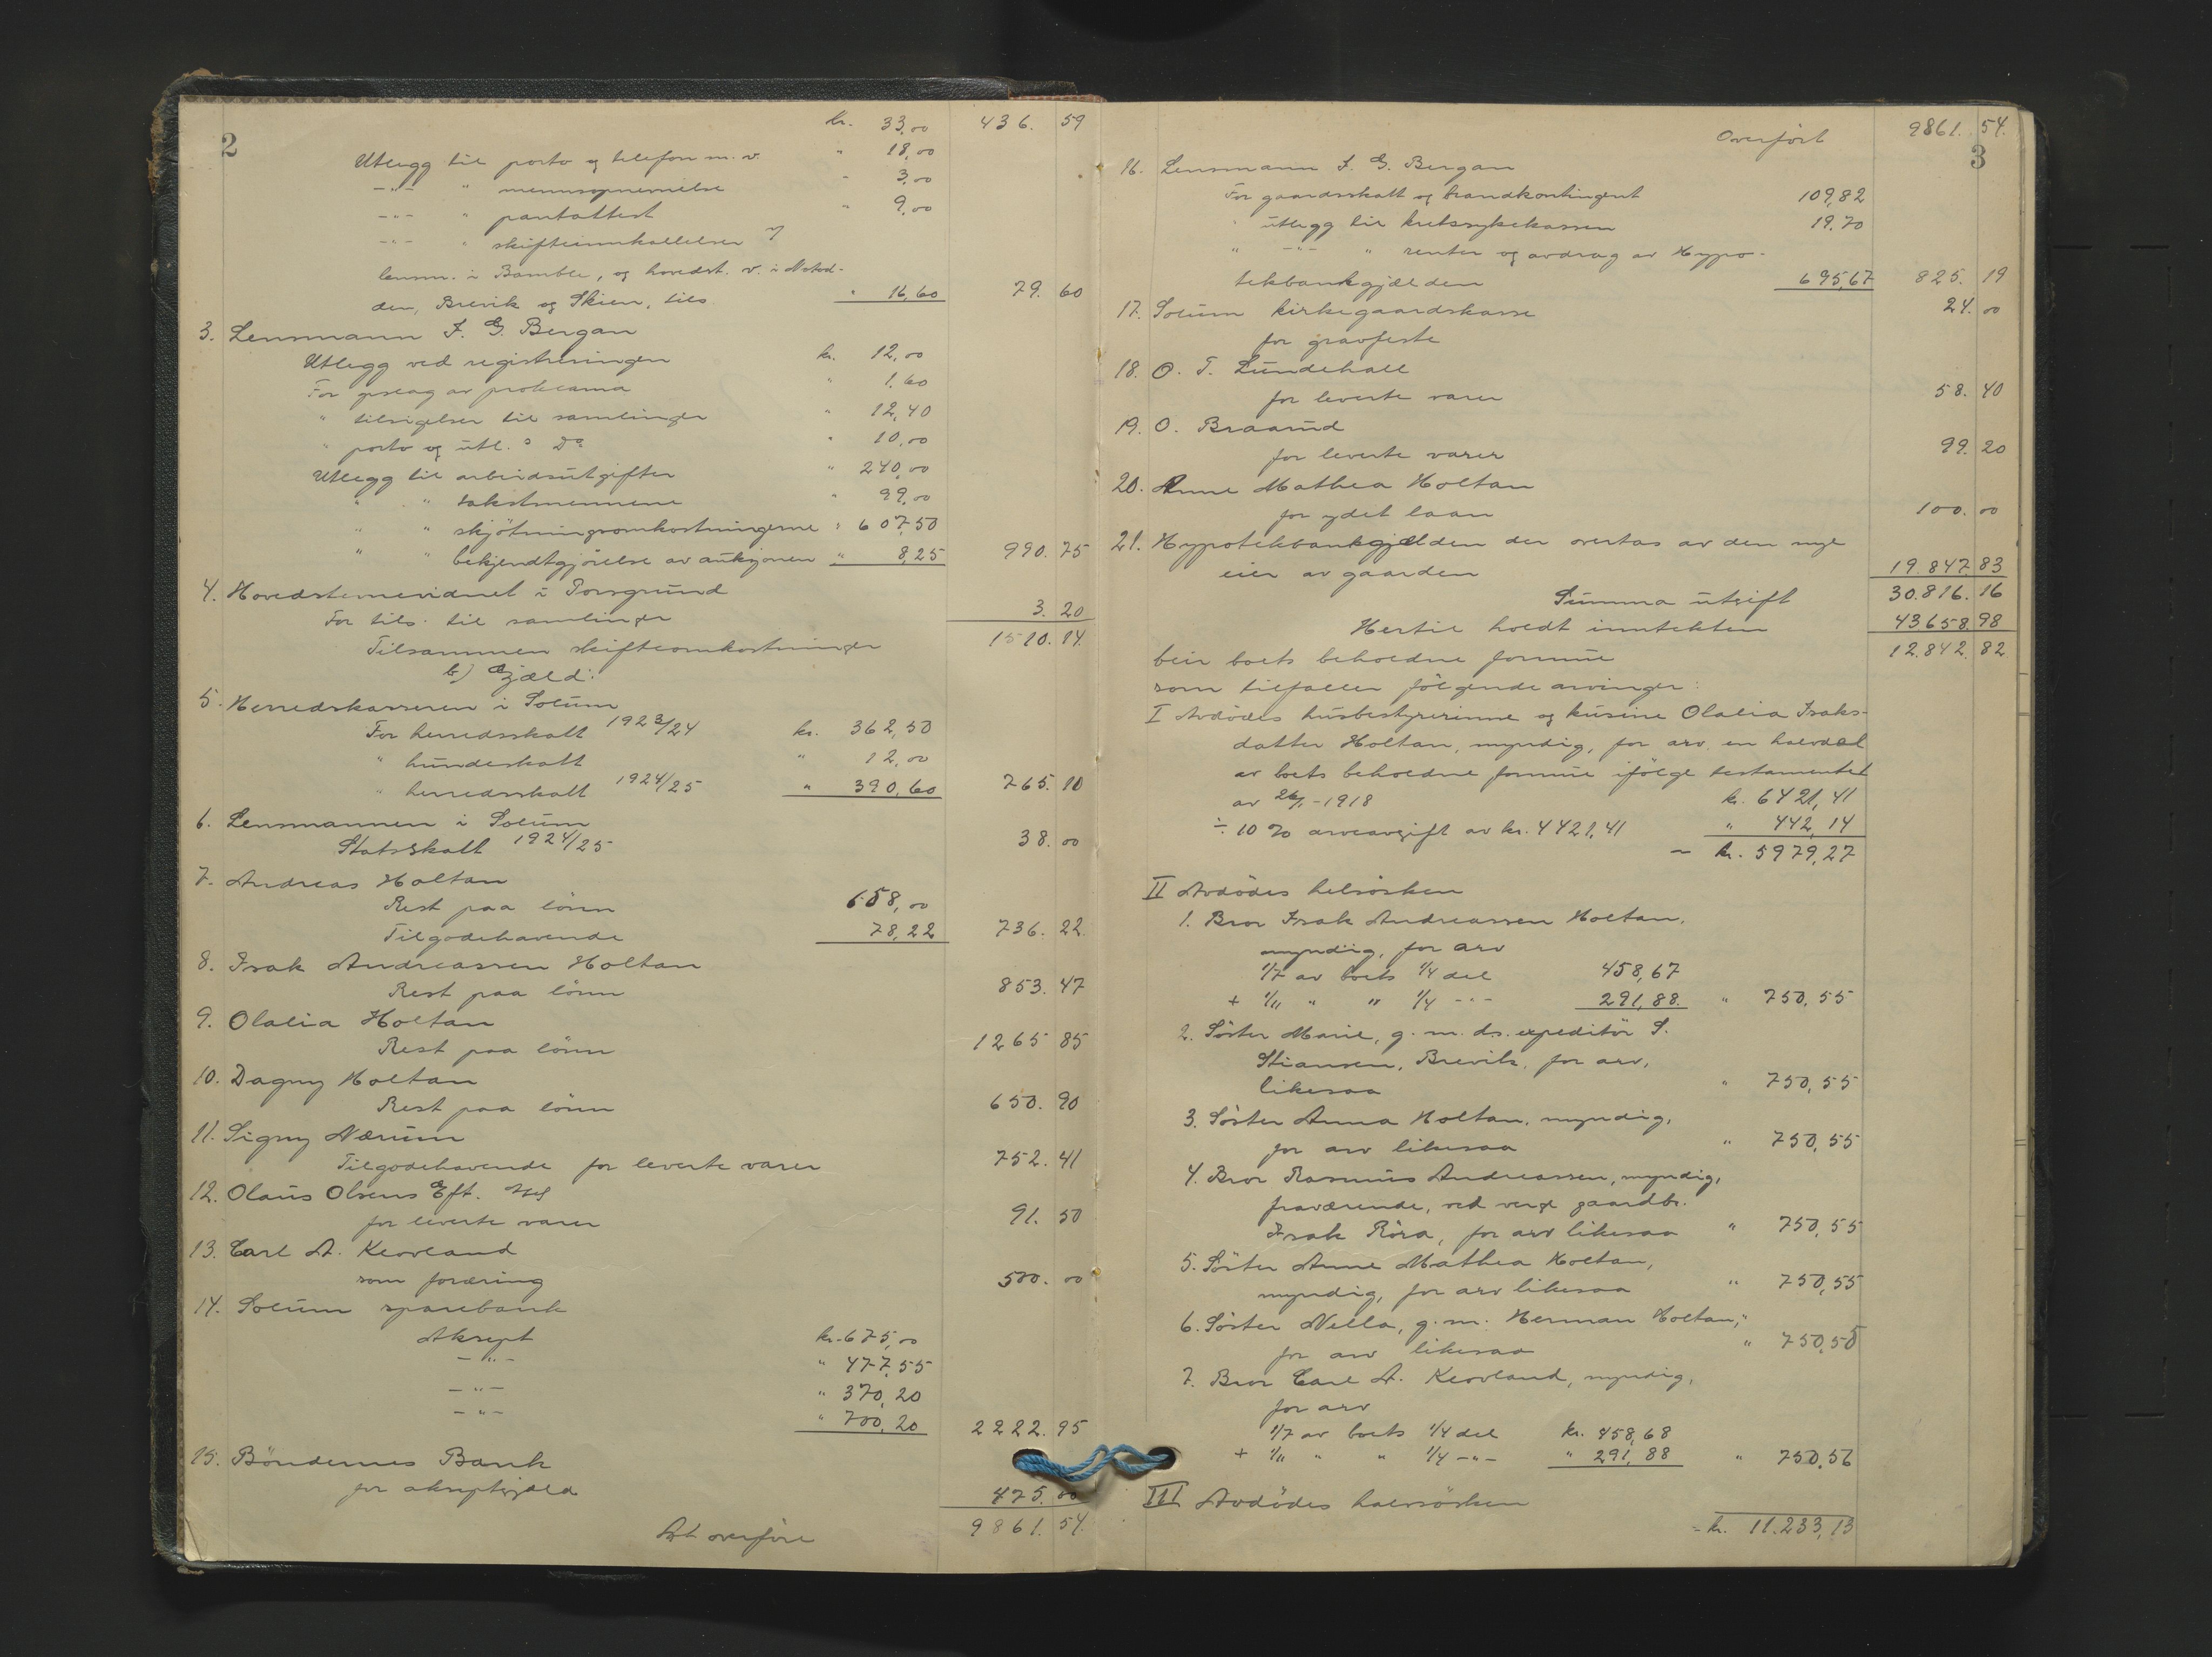 2
kr. 33,00 436. 59
Utlegg til porto og telefon m. v. " 18,00
-"- " mennsopnevnelse " 3,00
-"- " pantattest " 9,00
-"- " skifteinnkallelser
lensm. i Bamble, og hovedst. v. i Notod-
den, Brevik og Skien, tils. " 16,60 79. 60
3. Lensmann F. G. Bergan
Utlegg ved registreringen kr. 12,00
For opslag av proklama " 1.60
" tilsigelser til samlinger " 12,40
" porto og utl. " Do " 10,00
Utlegg til arbeidsutgifter " 240,00
" " takstmennene " 99,00
" " skjötningsomkostningerne " 607,50
" " bekjendtgjörelse av auksjonen " 8,25 990. 75
4. Hovedstevnevidnet i Porsgrund
For tils. til samlinger 3. 20
Tilsammen skifteomkostninger 1510. 14.
b) Gjæld:
5. Herredskasseren i Solum
For herredsskatt 1923/24 kr. 362,50
" hundeskatt " 12,00
" herredsskatt 1924/25 " 390,60 765. 10
6. Lensmannen i Solum
Statsskatt 1924/25 38. 00
7. Andreas Holtan
Rest paa lönn 658,00
Tilgodehavende 78,22 736. 22.
8. Isak Andreassen Holtan
Rest paa lönn 853. 47
9. Olalia Holtan
Rest paa lönn 1265 85
10. Dagny Holtan
Rest paa lönn 650. 90
11. Signy Nærum
Tilgodehavende for leverte varer 752. 41
12. Olaus Olsens Eft.
for leverte varer 91. 50
13. Carl A. Klovland
som foræring 500. 00
14. Solum sparebank
Aksept kr. 675,00
-"- " 477,55
-"- " 370,20
-"- " 700,20 2222. 95
15. Böndernes Bank
for akseptgjæld 475. 00
At overföre 9861. 54.
3
Overfört 9861. 54.
16. Lensmann F. G. Bergan
For gaardsskatt og brandkontingent 109,82
" utlegg til kretssykekassen 19.70
" -"- " renter og avdrag av Hypo-
tekbankgjælden 695,67 825. 19
17. Solum kirkegaardskasse 24. 00
for gravfeste
18. O. T. Lundehall
for leverte varer 58. 40
19. O. Braarud
for leverte varer 99. 20
20. Anne Mathea Holtan
for ydet laan 100. 00
21. Hypotekbankgjælden der overtas av den nye
eier av gaarden 19.847 83
Summa utgift 30.816. 16
Hertil holdt inntekten 43658. 98
blir boets beholdne formue 12.842. 82
som tilfaller fölgende arvinger:
I Avdödes husbestyrerinne og kusine Olalia Isaks-
datter Holtan, myndig, for arv en halvdel
av boets beholdne formue ifölge testamentet
av 26/1-1918 kr. 6421,41
÷ 10 % arveavgift av kr. 4421,41 " 442,14
- kr. 5979,27
II Avdödes helsösken
1. Bror Isak Andreassen Holtan,
myndig, for arv
1/7 av boets 1/4 del 458,67
+ 1/11 " " 1/4 -"- 291,88. " 750,55
2. Söster Marie, g. m. ds. expeditör S.
Stiansen, Brevik, for arv,
likesaa " 750,55
3. Söster Anna Holtan, myndig,
for arv likesaa " 750,55
4. Bror Rasmus Andreassen, myndig,
fraværende, ved verge gaardbr.
Isak Röra, for arv likesaa " 750,55
5. Söster Anne Mathea Holtan,
myndig, for arv likesaa " 750,55
6. Söster Nella, g. m. Herman Holtan,
for arv likesaa " 750,55
7. Bror Carl A. Klovland, myndig,
for arv
1/7 av boets 1/4 del kr. 458,68
+ 1/11 " " 1/4 -"- " 291,88 " 750,56
III Avdödes halvsösken
- kr. 11.233,13